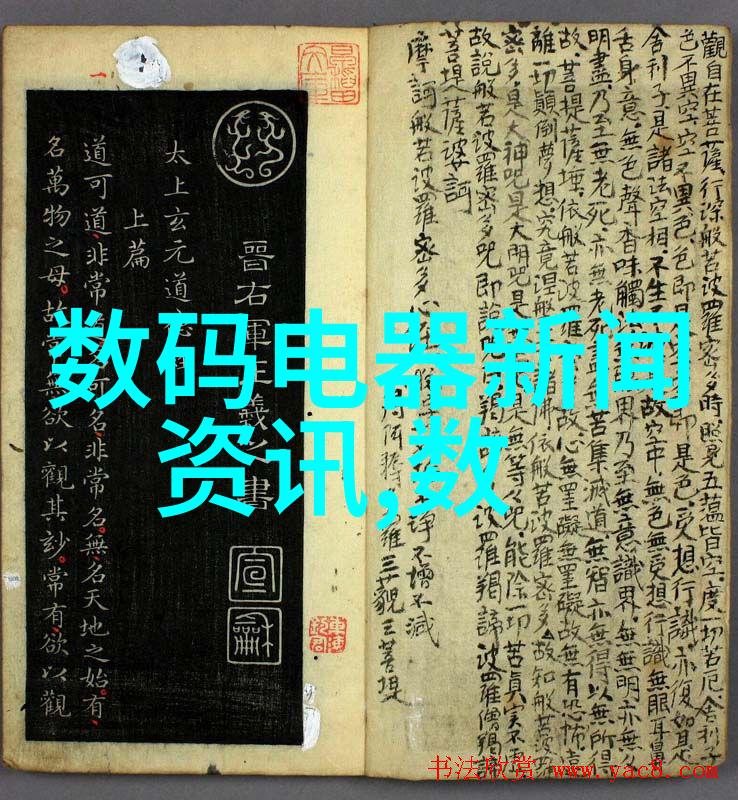 数码电器新闻
资讯,数
晉右軍王羲之書
宣
龢
太上玄元道
上篇
道可道非常可名非常名無名天地之始有
名萬物之母故無欲以觀其玅常有欲以觀
觀自在菩薩行深般若波羅密多時照見五蘊皆空度一切苦厄舍利子
色不異空空不異色色即是即是色受想行識亦復如是
舍利子是諸法空相不生故空中無色無受想行識無眼耳鼻
舌身意無色聲香味觸法界乃至無意識界無無明亦無
明盡乃至無老死亦無老死盡無苦集滅道無智亦無得以無所得
故菩提薩埵依般若波羅故心無罣礙無罣礙故無有恐怖遠
離一切顛倒夢想究竟涅槃諸佛依般若波羅密多故知般若波
密多是大神咒是大明咒是無是無等々咒能除一切苦真實不
故說般若波羅密多咒即說咒曰羯諦波羅羯諦波羅僧羯諦
不淨不增不減
菩提薩婆訶
得阿耨羅三藐三菩提
摩訶般若波羅密多心經
书法欣赏 www.yac8.com